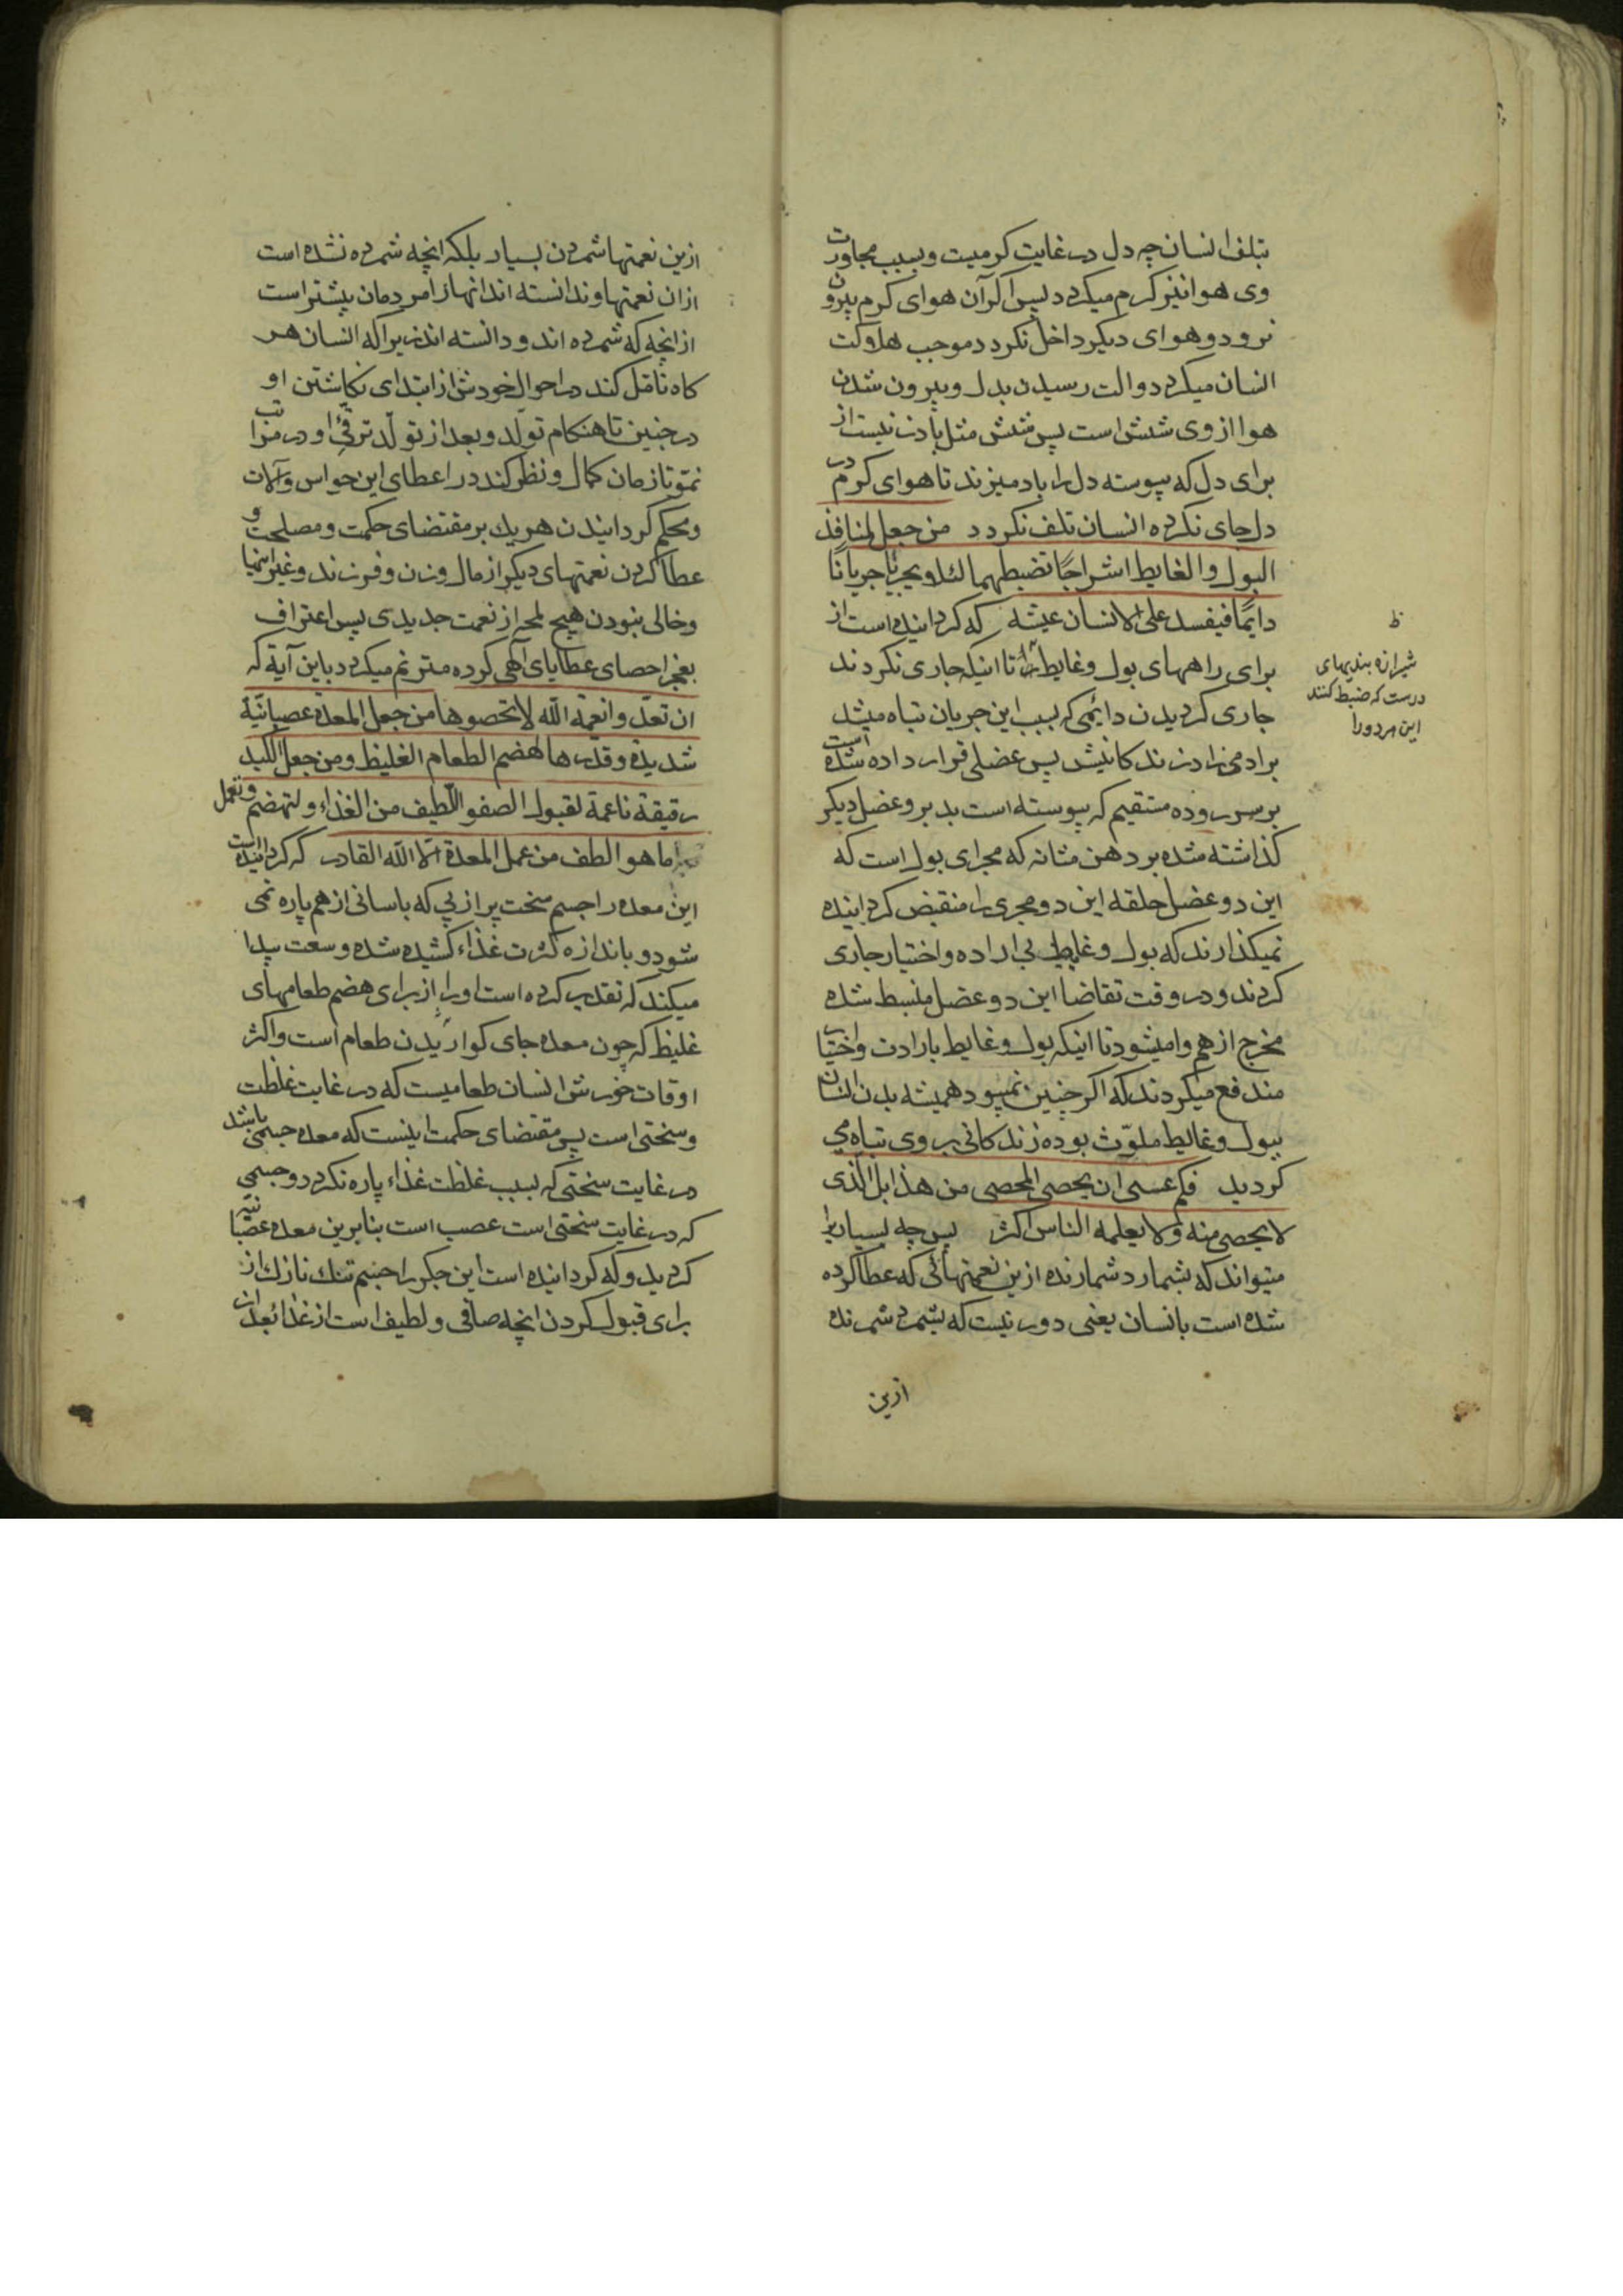 بتلف انسان چه دل در غایت کرمیت و بسبب مجاورت
وی هوا نیز کرم میکردد پس اکر آن هوای کرم بیرون
نرود و هوای دیکر داخل نکردد موجب هلاکت
انسان میکردد والت رسیدن بدل و بیرون شدن
هوا از وی شش است پس شش مثل بادزنیست از
برای دل که پیوسته دل را باد میزند تا هوای کرم در
دل جای نکرده انسان تلف نکردد من جعل لمنافذ
البول والغایط اشراجًا تضبطهما لئلا یجریا جریانًا
دایمًا فیفسد علی الانسان عیشه که کردانیده است از
برای راههای بول و غایط تا اینکه جاری نکردند
جاری کردیدن دائمی که بسبب این جریان تباه میشد
برادمیزاد زندکانیش پس عضلی قرار داده شده است
بر سر روده مستقیم که پیوسته است بدبر و عضل دیکر
کذاشته شده بر دهن مثانه که مجرای بول است که
این دو عضل حلقه این دو مجری را منقبض کردانیده
نمیکذارند که بول و غایط بی اراده و اختیار جاری
کردند و در وقت تقاضا این دو عضل منبسط شده
مخرج از هم وا میشود تا اینکه بول و غایط بارادت و اختیار
مندفع میکردند که اکر چنین نمیبود همیشه بدن انسان
ببول و غایط ملوّث بوده زندکانی بر وی تباه می
کردید فکم عسی ان یحصی المحصی من هذا بل الذی
لا یحصی منه ولا یعلمه الناس اکثر پس چه بسیار را
میتواند که بشمارد شمارنده ازین نعمتهائی که عطا کرده
شده است بانسان یعنی دور نیست که بشمرد شمرنده
ازین
ظ
شیرازه بندیهای
درست که ضبط کنند
این هر دو را
ازین نعمتها شمردن بسیار بلکه انچه شمرده نشده است
ازان نعمتها و ندانسته اند انها را مردمان بیشتر است
از انچه که شمرده اند و دانسته اند زیرا که انسان هر
کاه تامّل کند در احوال خودش از ابتدای نکاشتن او
در جنین تا هنکام تولّد و بعد از تولّد ترقّی او در مراتب
نموّ تا زمان کمال و نظر کند در اعطای این حواس و آلات
و محکم کردانیدن هر یک بر مقتضای حکمت و مصلحت و
عطا کردن نعمتهای دیکر از مال و زن و فرزند و غیر اینها
و خالی نبودن هیچ لمحه از نعمت جدیدی پس اعتراف
بعجز احصای عطایای الهی کرده مترنم میکردد باین آیة که
ان تعدّوا نعمة الله لا تحصوها من جعل المعدة عصبانیّة
شدیدة وقدرها لهضم الطعام الغلیظ ومن جعل الکبد
رقیقة ناعمة لقبول الصفو اللّطیف من الغذاء ولتهضم وتعمل
ما هو الطف من عمل المعدة الّا الله القادر که کردانیده است
این معده را جسم سخت پر از پی که باسانی از هم پاره نمی
شود و باندازه کثرت غذاء کشیده شده وسعت پیدا
میکند که تقدیر کرده است او را از برای هضم طعامهای
غلیظ که چون معده جای کواریدن طعام است و اکثر
اوقات خورش انسان طعامیست که در غایت غلظت
و سختی است پس مقتضای حکمت اینست که معده جسمی باشد
در غایت سختی که بسبب غلظت غذاء پاره نکردد و جسمی
که در غایت سختی است عصب است بنابرین معده عصبانیّه
کردید و که کردانیده است این جکر را جسم تنک نازک از
برای قبول کردن انچه صافی و لطیف است از غذا بعد از ان